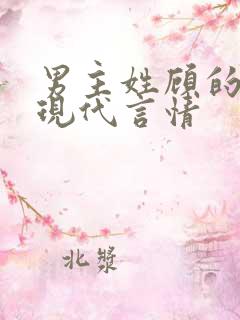 男主姓顾的
現代言情
北漿